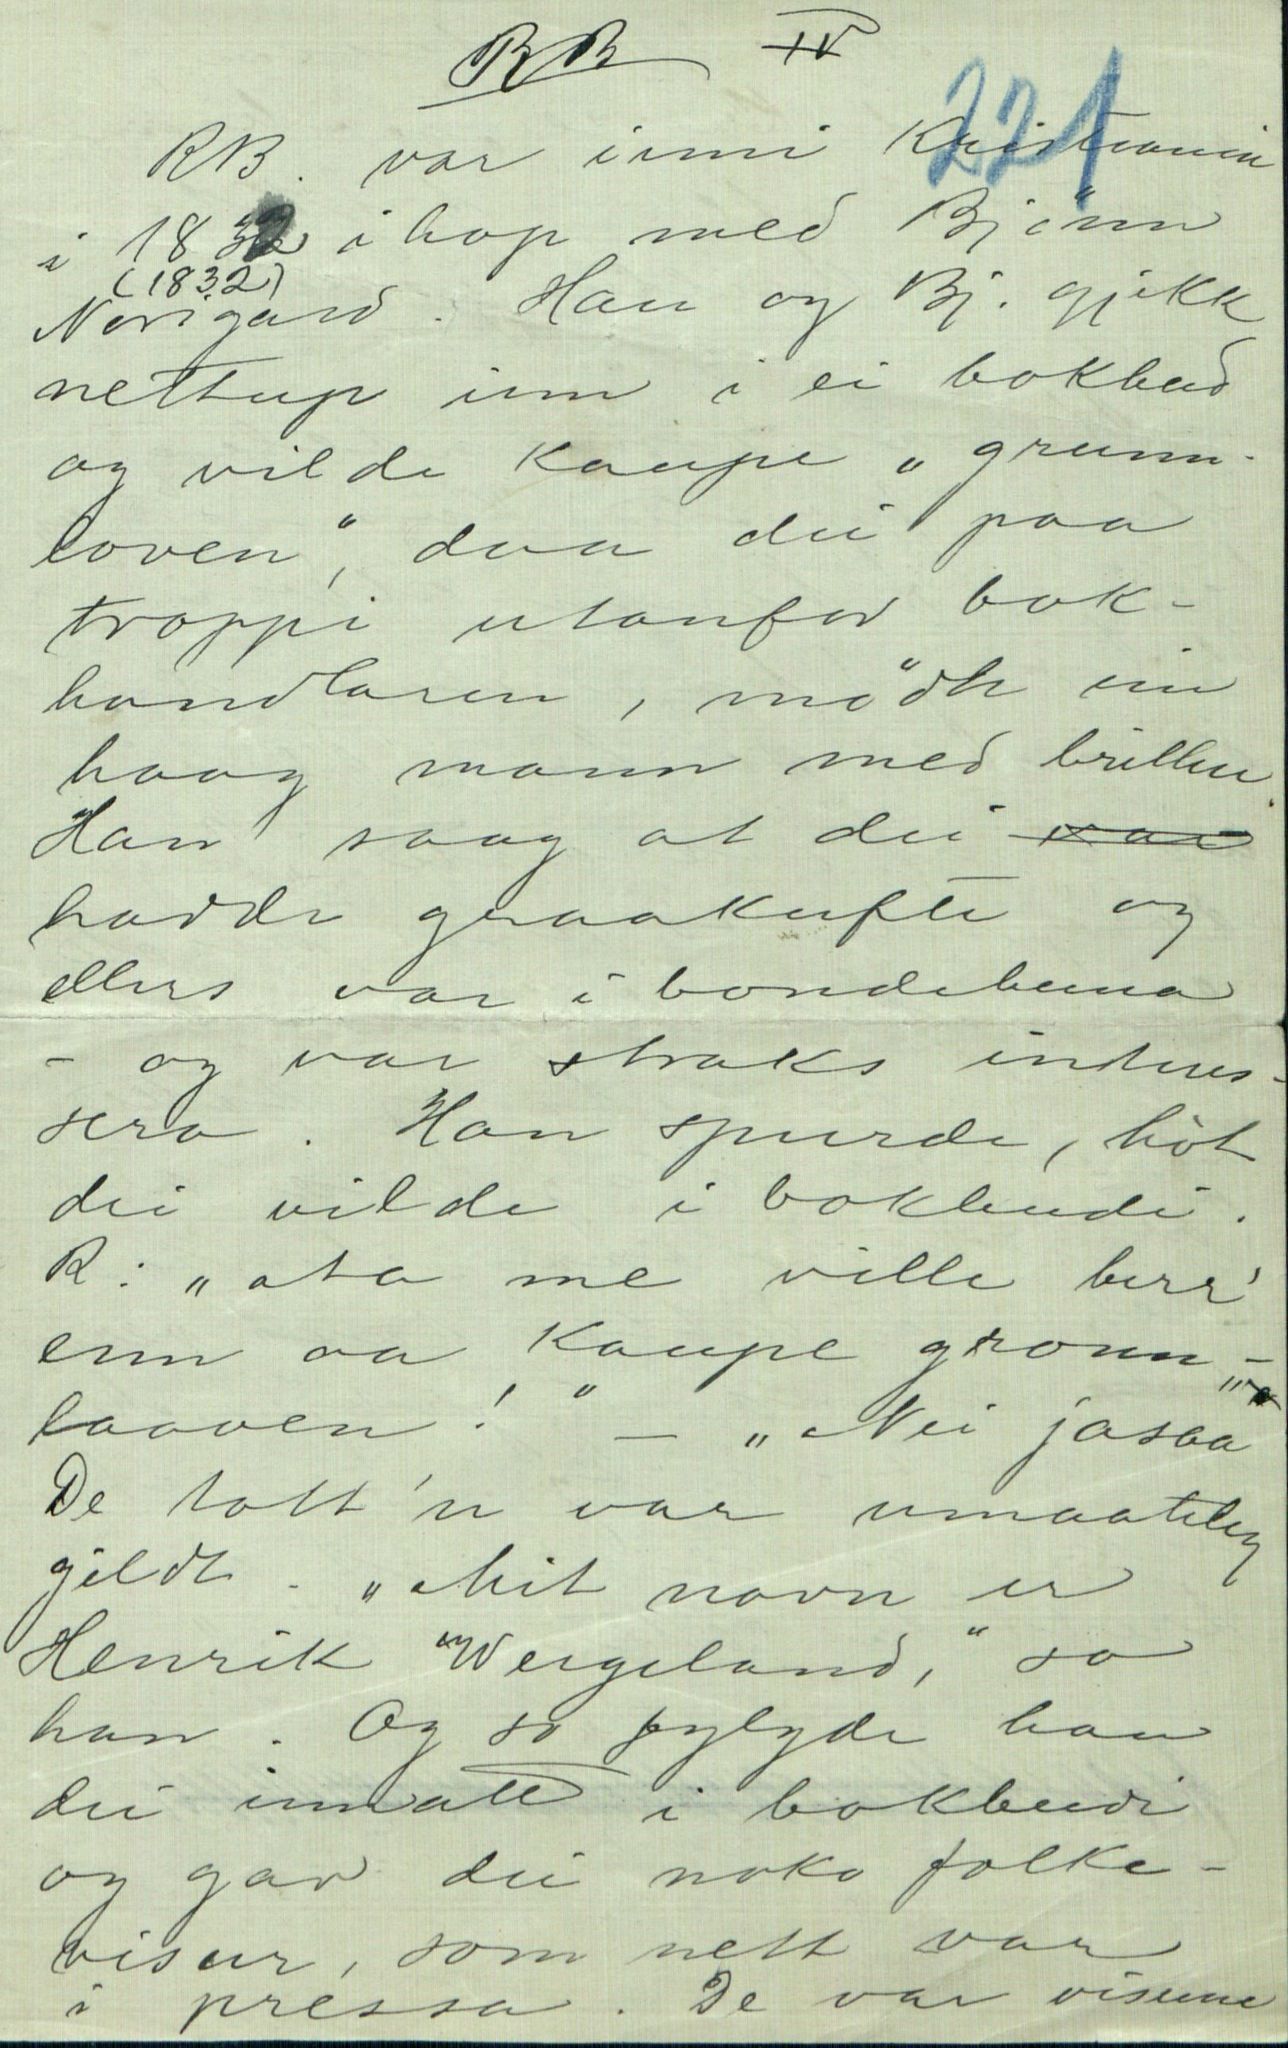 RB IV
221
RB. var inni Kristiania
i 1832 ihop med Bjönn
(1832)
Norigard. Han og Bj. gjekk
nettup inn i ei bokbud
og vilde kaupe „grunn-
loven“, daa dei paa
troppi utanfor bok-
handlaren, mödte ein
haag mann med briller.
Han saag at dei var
hadde graakufte og
ellers var i bondebuna
- og var straks intres-
sera. Han spurde, höt
dei vilde i bokbudi.
R: „Aa me ville berr'
enn aa kaupe gronn-
laaven!“ — „Nei jasaa“
De tott'n var umaateleg
gildt. „Mit navn er
Henrik Wergeland,“ sa
han. Og so fylgde han
dei innatt i bokbudi
og gav dei noko folke-
visur, som nett var
i pressa. De var visune